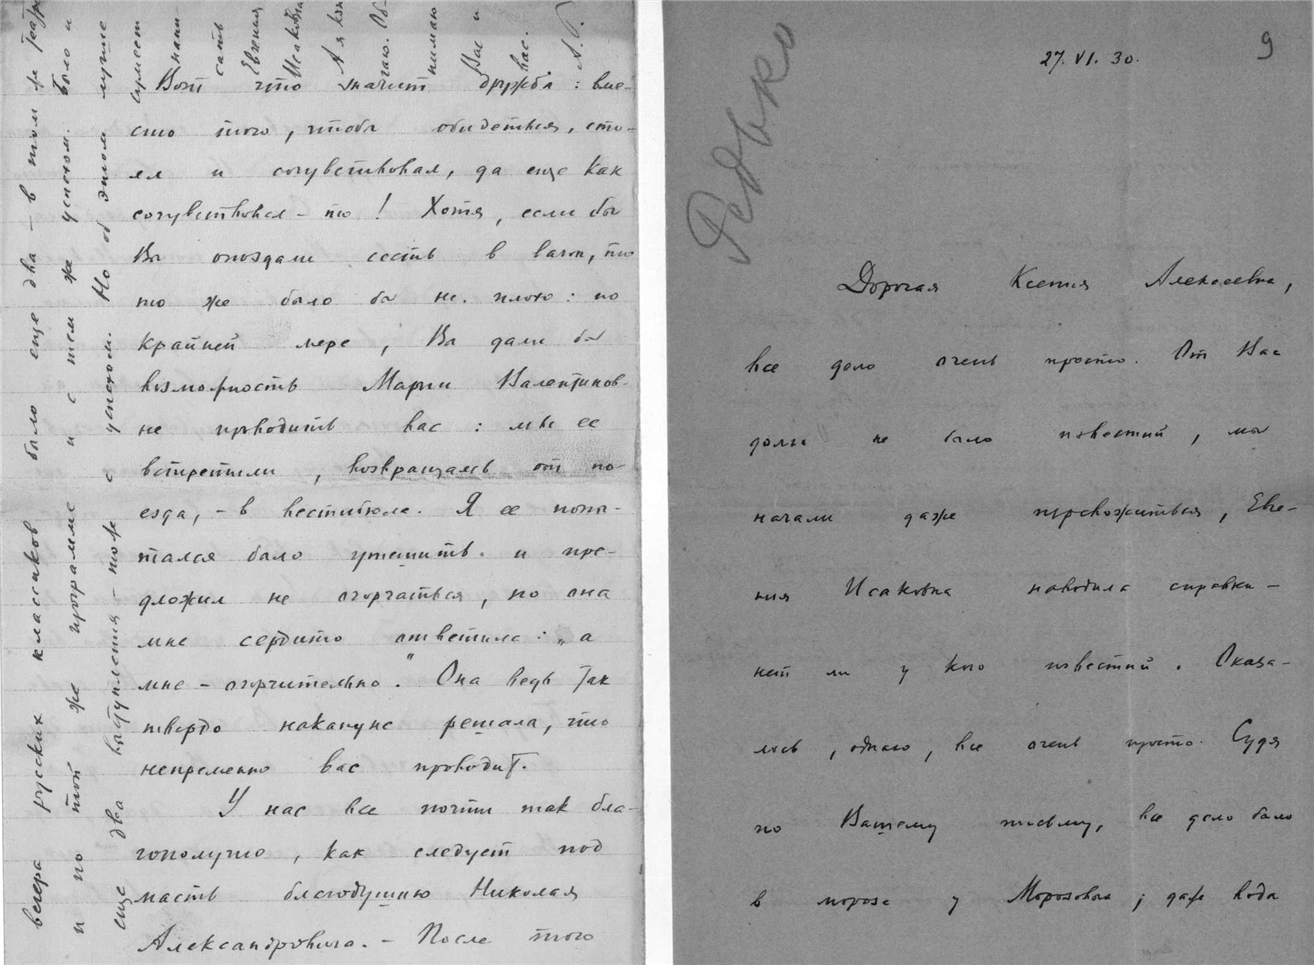 Вот что значит дружба: вме-
сто того, чтобы обидеться, сто-
ял и сочувствовал, да еще как
сочувствовал-то! Хотя, если бы
Вы опоздали сесть в вагон, то
то же было бы не плохо: по
крайней мере, Вы дали бы
возможность Марии Валентинов-
не проводить вас: мы ее
встретили, возвращаясь от по-
езда, - в вестибюле. Я ее попы-
тался было утешить и пре-
дложил не огорчаться, но она
мне сердито ответила: „а
мне - огорчительно". Она ведь так
твердо накануне решала, что
непременно вас проводит.
У нас все почти так бла-
гополучно, как следует под
масть благодушию Николая
Александровича. - После того
вечера русских классиков было еще два - в том же театре
и по той же программе и с тем же успехом. Было и
еще два выступления - тоже с успехом. Но об этом лучше
сумеет
напи-
сать
Евгения
Исаковна
А я кон-
чаю. Об-
нимаю
Вас и
вас.
А. Р.
Редько
9
27. VI. 30.
Дорогая Ксения Алексеевна,
все дело очень просто. От Вас
долго не было известий, мы
начали даже тревожиться, Евге-
ния Исаковна наводила справки -
нет ли у кого известий. Оказа-
лось, однако, все очень просто. Судя
по Вашему письму, все дело было
в морозе у Морозовых; даже вода